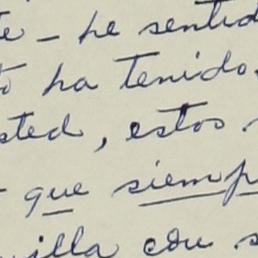 te - he sentid
to ha tenido
sted, estos
que siemp
illa con s